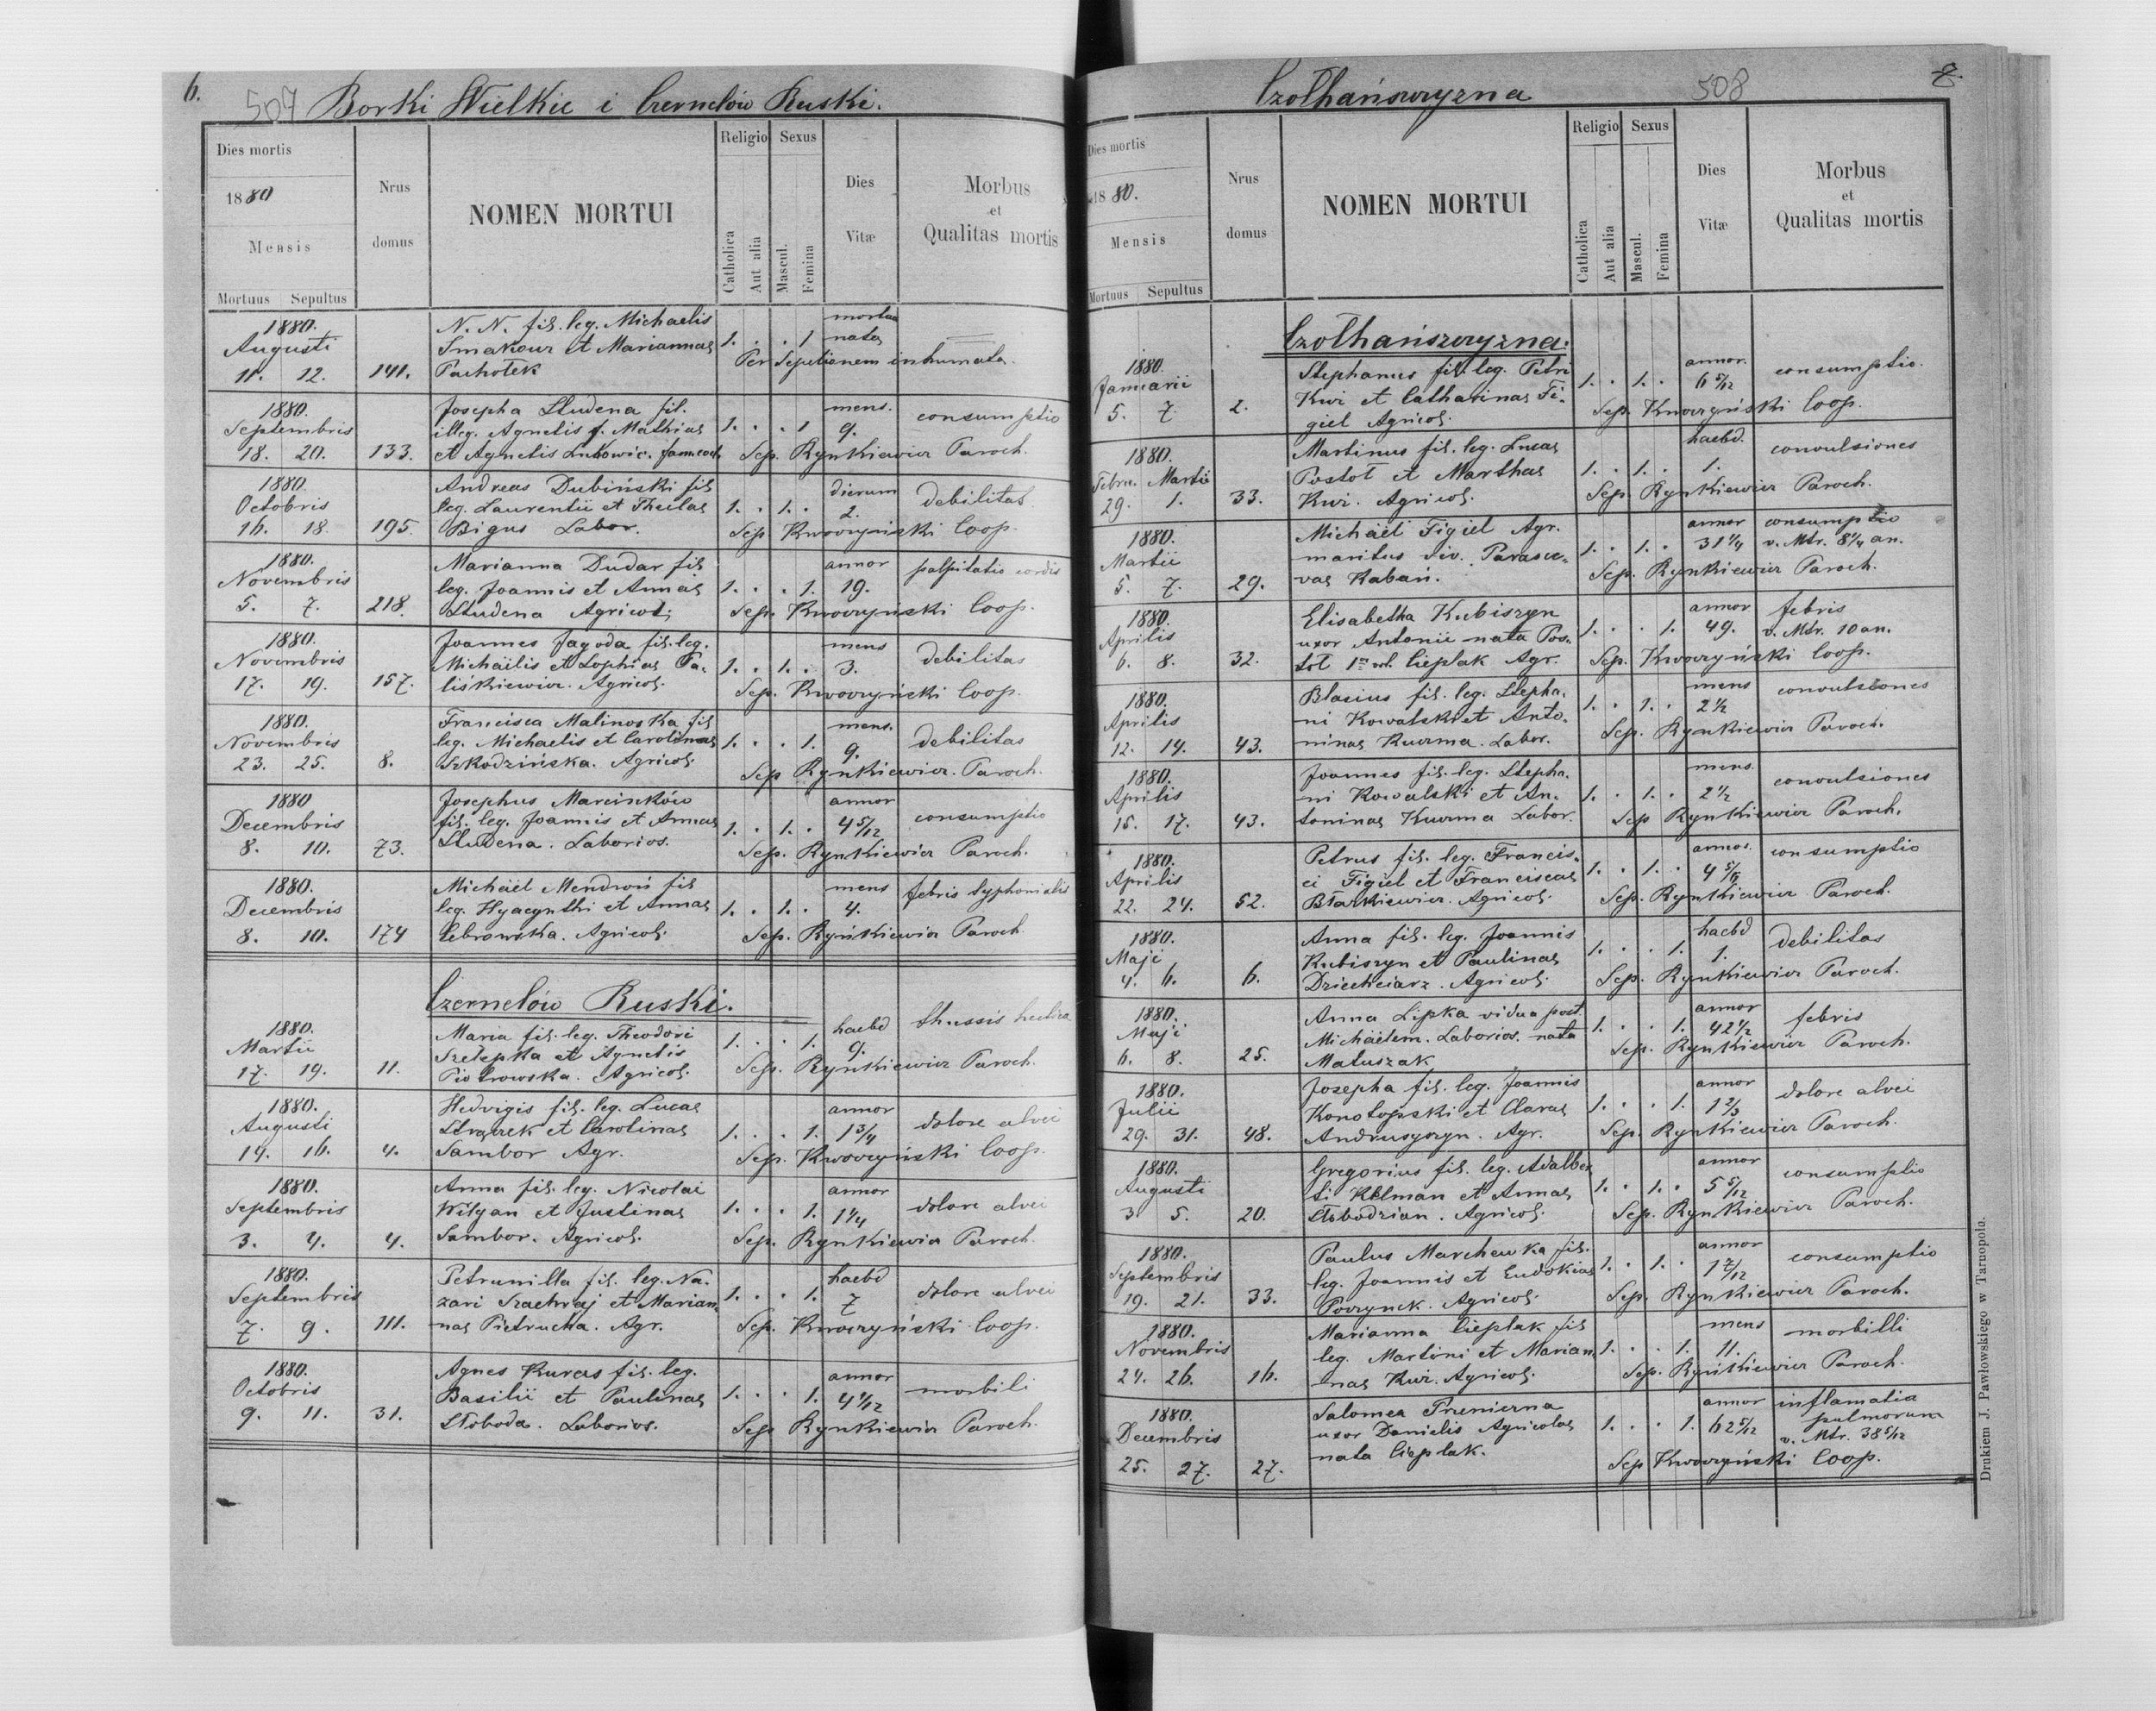 6.
507 Borki Wielkie i Czernelów Ruski.
Dies mortis
1880
Mensis
Mortuus Sepultus
Nrus domus
NOMEN MORTUI
Religio
Catholica
Aut alia
Sexus
Mascul.
Femina
Dies Vitæ
Morbus et Qualitas mortis
1880. Augusti 11. 12. 141.
N. N. fil. leg. Michaelis
Smakour et Mariannae
Pachotek
1. . . 1 mortua nata —
Per Sepelionem inhumata.
1880. Septembris 18. 20. 133.
Josepha Studena fil.
illeg. Agnetis f. Mathiae
et Agnetis Lukowic. fameoch
1. . . 1 mens. 9. consumptio
Sep. Rynkiewicz Paroch.
1880. Octobris 16. 18. 195.
Andreas Dubiński fil
leg. Laurentii et Theclae
Bigus Labor.
1. . 1. . dierum 2. debilitas
Sep Kwoczyński Coop.
1880. Novembris 5. 7. 218.
Marianna Dudar fil
leg. Joannis et Annae
Studena Agricol.
1. . . 1. annor 19. palpitatio cordis
Sep. Kwoczyński Coop.
1880. Novembris 17. 19. 157.
Joannes Jagoda fil. leg.
Michäelis et Sophiae Pa-
liśkiewicz. Agricol.
1. . 1. . mens 3. debilitas
Sep. Kwoczyński Coop.
1880. Novembris 23. 25. 8.
Francisca Malinoska fil
leg. Michaelis et Carolinae
Szkodzińska. Agricol.
1. . . 1. mens. 9. debilitas
Sep Rynkiewicz. Paroch.
1880 Decembris 8. 10. 73.
Josephus Marcinków
fil. leg. Joannis et Annae
Studena. Laborios.
1. . 1. . annor 4 5/12 consumptio
Sep. Rynkiewicz Paroch.
1880. Decembris 8. 10. 174
Michäel Mendroń fil
leg. Hyacynthi et Annae
Cebrowska. Agricol.
1. . 1. . mens 4. febris typhoialis
Sep. Rynkiewicz Paroch
Czernelów Ruski.
1880. Martii 17. 19. 11.
Maria fil. leg. Theodori
Szelepka et Agnetis
Piotrowska. Agricol.
1. . . 1. haebd 9. thussis hectica
Sep. Rynkiewicz Paroch.
1880. Augusti 14. 16. 4.
Hedvigis fil. leg. Lucae
Strączek et Carolinae
Sambor Agr.
1. . . 1. annor 1 3/4 dolore alvei
Sep. Kwoczyński Coop.
1880. Septembris 3. 4. 4.
Anna fil. leg. Nicolai
Wilgan et Justinae
Sambor. Agricol.
1. . . 1. annor 1 1/4 dolore alvei
Sep. Rynkiewicz Paroch.
1880. Septembris 7. 9. 111.
Petrunilla fil. leg. Na-
zari Szachwaj et Marian-
nae Pietrucha. Agr.
1. . . 1. haebd 7 dolore alvei
Sep. Kwoczyński Coop.
1880. Octobris 9. 11. 31.
Agnes Kuras fil. leg.
Basilii et Paulinae
Słoboda. Laborios.
1. . . 1. annor 4 1/12 morbili
Sep Rynkiewicz Paroch.
Czołhańszczyzna 508 7.
Dies mortis
1880.
Mensis
Mortuus Sepultus
Nrus domus
NOMEN MORTUI
Religio
Catholica
Aut alia
Sexus
Mascul.
Femina
Dies Vitæ
Morbus et Qualitas mortis
Czołhańszczyzna.
1880. Januarii 5. 7 2.
Stephanus fil. leg. Petri
Kwi et Catharinae Fi-
giel Agricol.
1. . 1. . annor. 6 5/12 consumptio.
Sep. Kwoczyński Coop.
1880. Febru. Martii 29. 1. 33.
Martinus fil. leg. Lucae
Postoł et Marthae
Kwi. Agricol.
1. . 1. . haebd. 1. convulsiones
Sep. Rynkiewicz Paroch.
1880. Martii 5. 7. 29.
Michäel Figiel Agr.
maritus viv. Parasce-
vae Kabań.
1. . 1. . annor 31 1/4 consumptio
v. Mtr. 8 1/4 an.
Sep. Rynkiewicz Paroch.
1880. Aprilis 6. 8. 32.
Elisabetha Kubiszyn
uxor Antonii nata Pos-
toł 1o vol. Cieplak Agr.
1. . . 1. annor 49. febris
v. Mtr. 10 an.
Sep. Kwoczyński Coop.
1880. Aprilis 12. 14. 43.
Blasius fil. leg. Stepha-
ni Kowalski et Anto-
ninae Kuzma. Labor.
1. . 1. . mens 2 1/2 convulsiones
Sep. Rynkiewicz Paroch.
1880. Aprilis 15. 17. 43.
Joannes fil. leg. Stepha-
ni Kowalski et An-
toninae Kuzma Labor.
1. . 1. . mens. 2 1/2 convulsiones
Sep Rynkiewicz Paroch.
1880. Aprilis 22. 24. 52.
Petrus fil. leg. Francis-
ci Figiel et Franciscae
Błaśkiewicz. Agricol.
1. . 1. . annor. consumptio
Sep. Rynkiewicz Paroch.
1880. Maji 4. 6. 6.
Anna fil. leg. Joannis
Kubiszyn et Paulinae
Dziechciarz. Agricol.
1. . . 1. haebd 1. debilitas
Sep. Rynkiewicz Paroch.
1880. Maji 6. 8. 25.
Anna Lipka vidua post
Michäelem. Laborios. nata
Matuszak
1. . . 1. annor 42 1/2 febris
Sep. Rynkiewicz Paroch.
1880. Julii 29. 31. 48.
Josepha fil. leg. Joannis
Konotopski et Clarae
Andrusyszyn. Agr.
1. . . 1. annor 1 2/3 dolore alvei
Sep. Rynkiewicz Paroch.
1880. Augusti 3. 5. 20.
Gregorius fil. leg. Adalber-
ti Kelman et Annae
Słobodzian. Agricol.
1. . 1. . annor 5 5/12 consumptio
Sep. Rynkiewicz Paroch.
1880. Septembris 19. 21. 33.
Paulus Marchewka fil.
leg. Joannis et Eudokiae
Poczynek. Agricol.
1. . 1. . annor 1 7/12 consumptio
Sep. Rynkiewicz Paroch.
1880. Novembris 24. 26. 16.
Marianna Cieplak fil
leg. Martini et Marian-
nae Kuz. Agricol.
1. . . 1. mens 11. morbilli
Sep. Rynkiewicz Paroch.
1880. Decembris 25. 27. 27.
Salomea Przeniczna
uxor Danielis Agricolae
nata Cieplak.
1. . . 1. annor 62 5/12 inflamatia
pulmorum
v. Mtr. 38 5/12
Sep Kwoczyński Coop.
Drukiem J. Pawłowskiego w Tarnopolu.